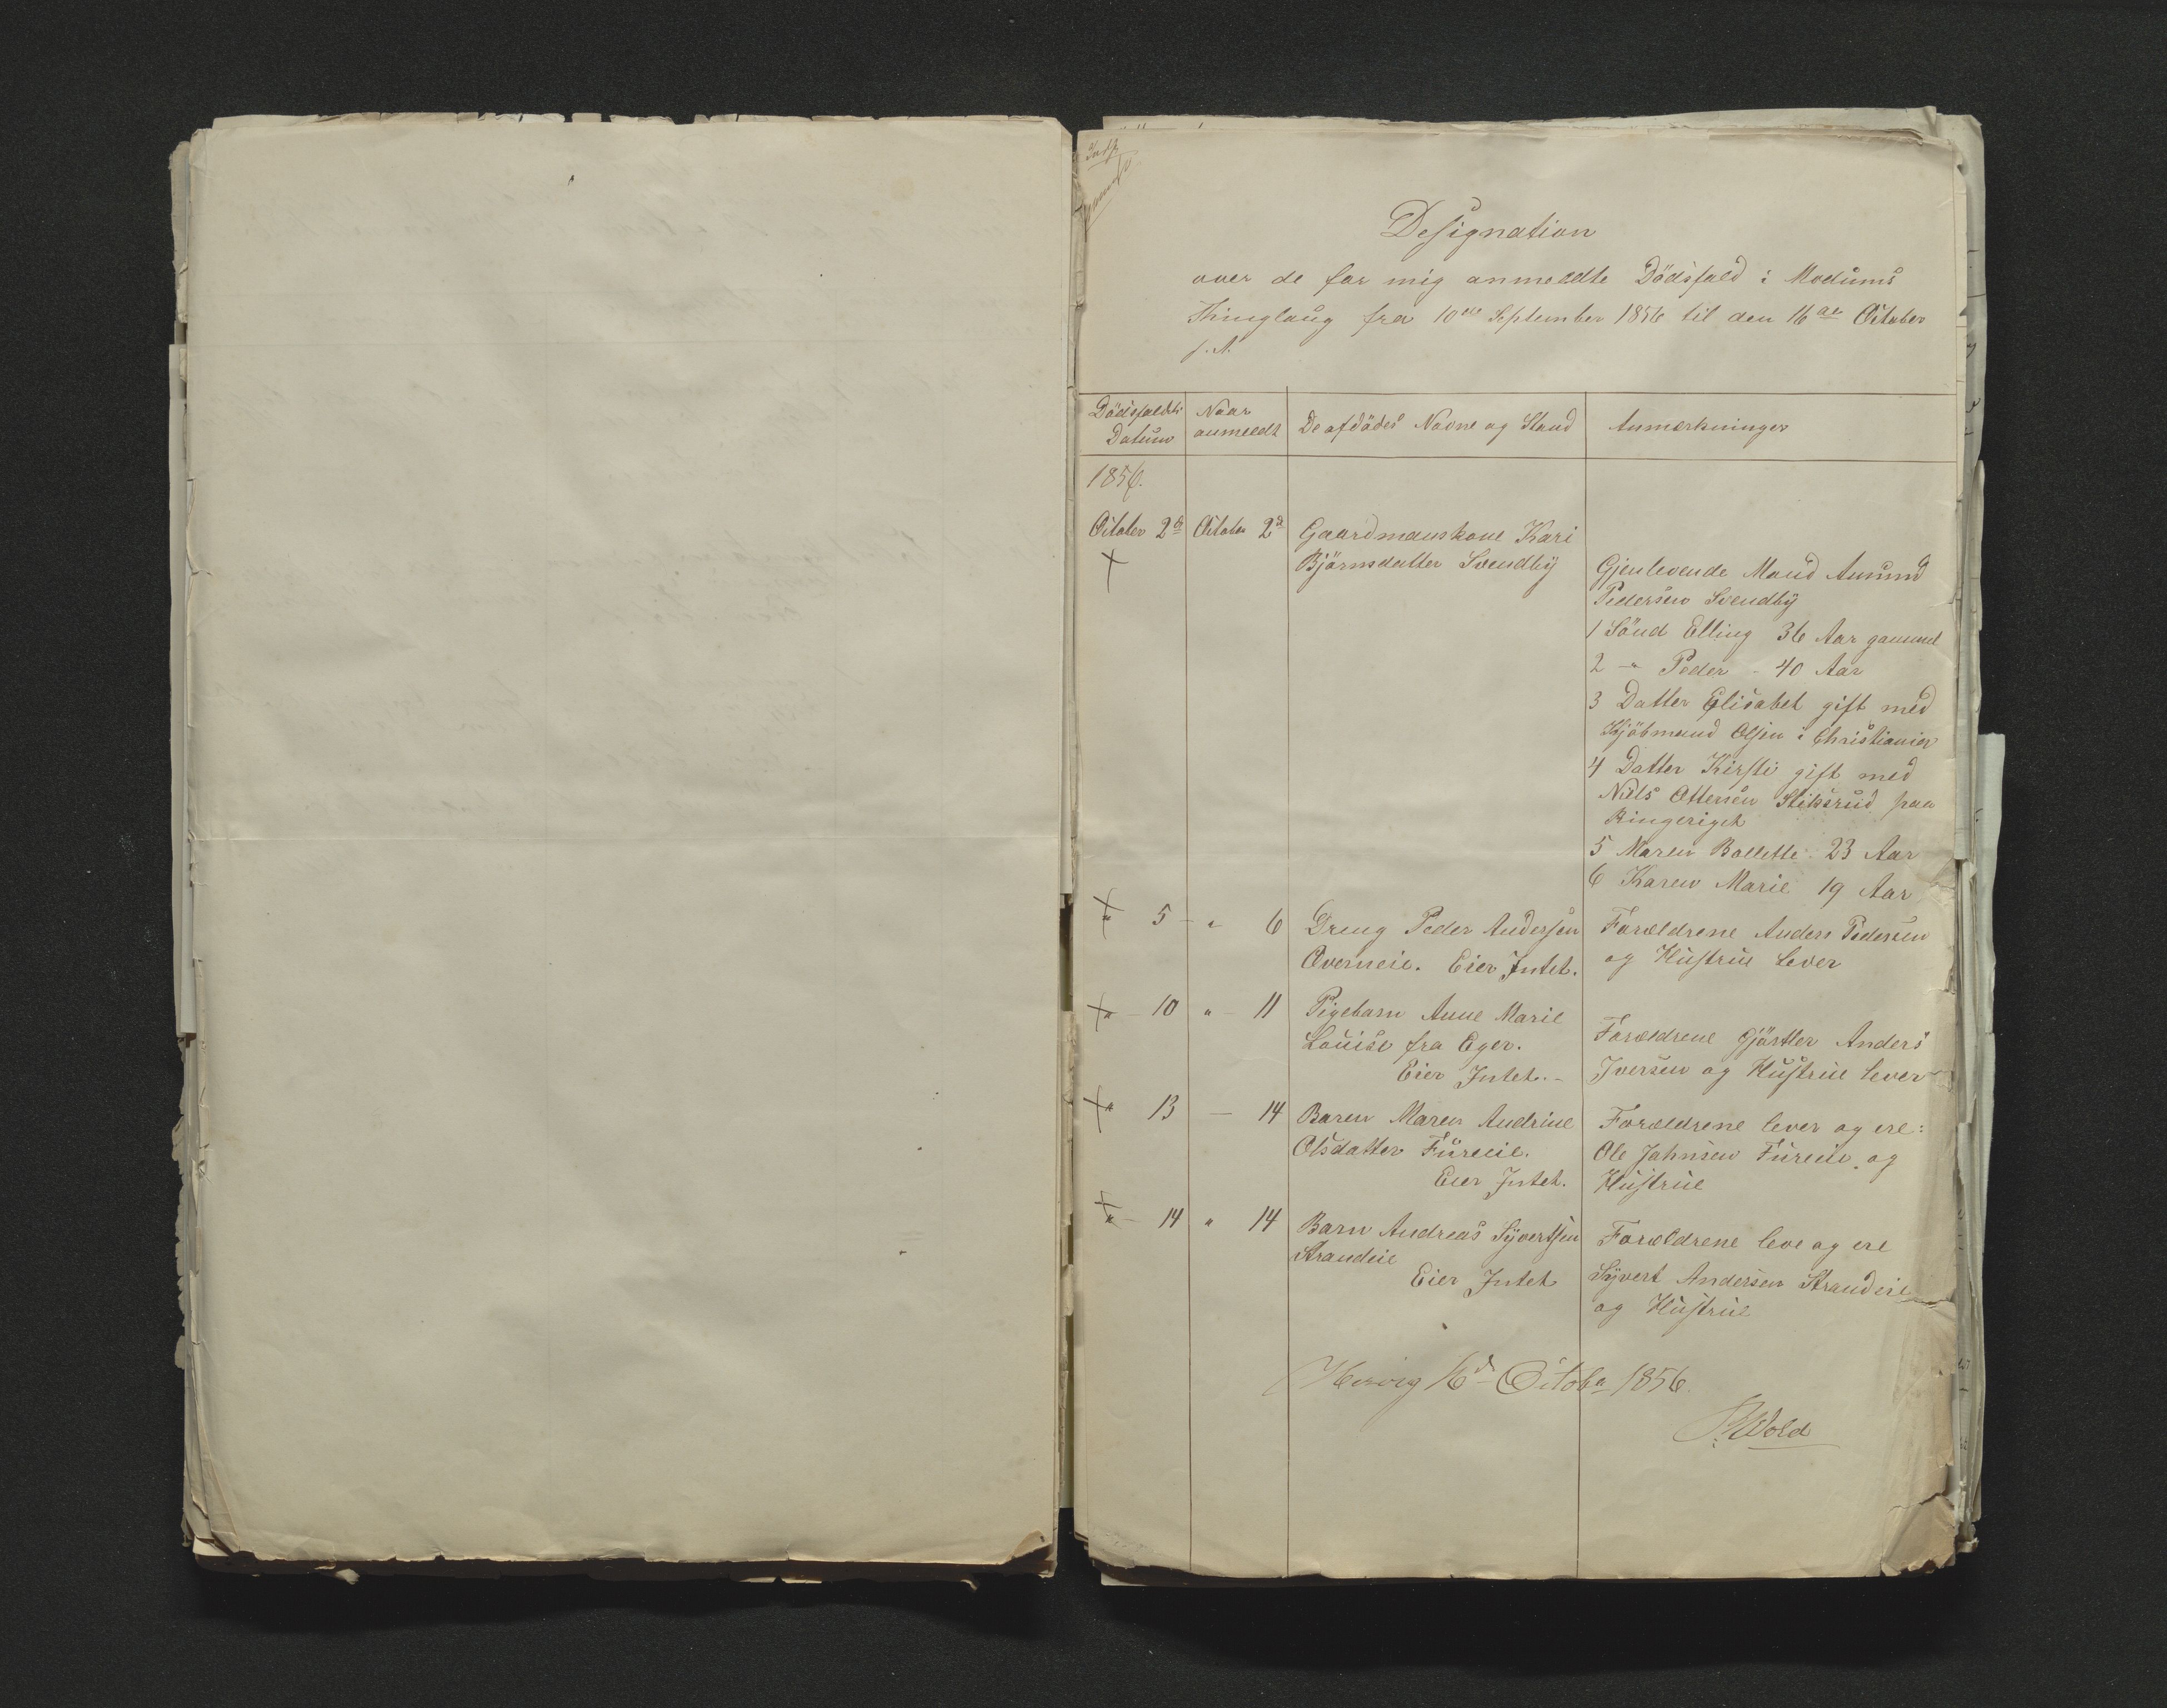 Designation
over de for mig anmeldte Dödsfald i Modums
Thinglaug fra 10de September 1856 til den 16de October
s. A.
Dödsfaldets Datum
Naar anmeldt
De afdödes Navne og Stand
Anmærkninger
1856.
October 2de October 2de Gaardmanskone Kari
Björnsdatter Svendby
Gjenlevende Mand Amund
Pedersen Svendby
1 Sönd Elling 36 Aar gammel
2 - " Peder - 40 Aar
3 Datter Elisabet gift med
Kjöbmand Olsen i Christiania
4 Datter Kirsti gift med
Niels Ottersen Stiksrud paa
Ringeriget
5 Maren Bollette 23 Aar
6 Karen Marie 19 Aar
" 5 - " 6 Dreng Peder Andersen
Overneie. Eier Intet.
Forældrene Anders Pedersen
og Hustrue lever
" - 10 " - 11 Pigebarn Anne Marie
Louise fra Eger.
Eier Intet. -
Forældrene Gjörtler Anders
Iversen og Hustrue lever
" 13 — 14 Baren Maren Andrine
Olsdatter Fureeie.
Eier Intet.
Forældrene lever og ere:
Ole Johnsen Fureeie og
Hustrue
" - 14 " 14 Barn Andreas Syvertsen
Strandeie
Eier Intet
Forældrene leve og ere
Syvert Andersen Strandeie
og Hustrue
16d October 1856.
Wold